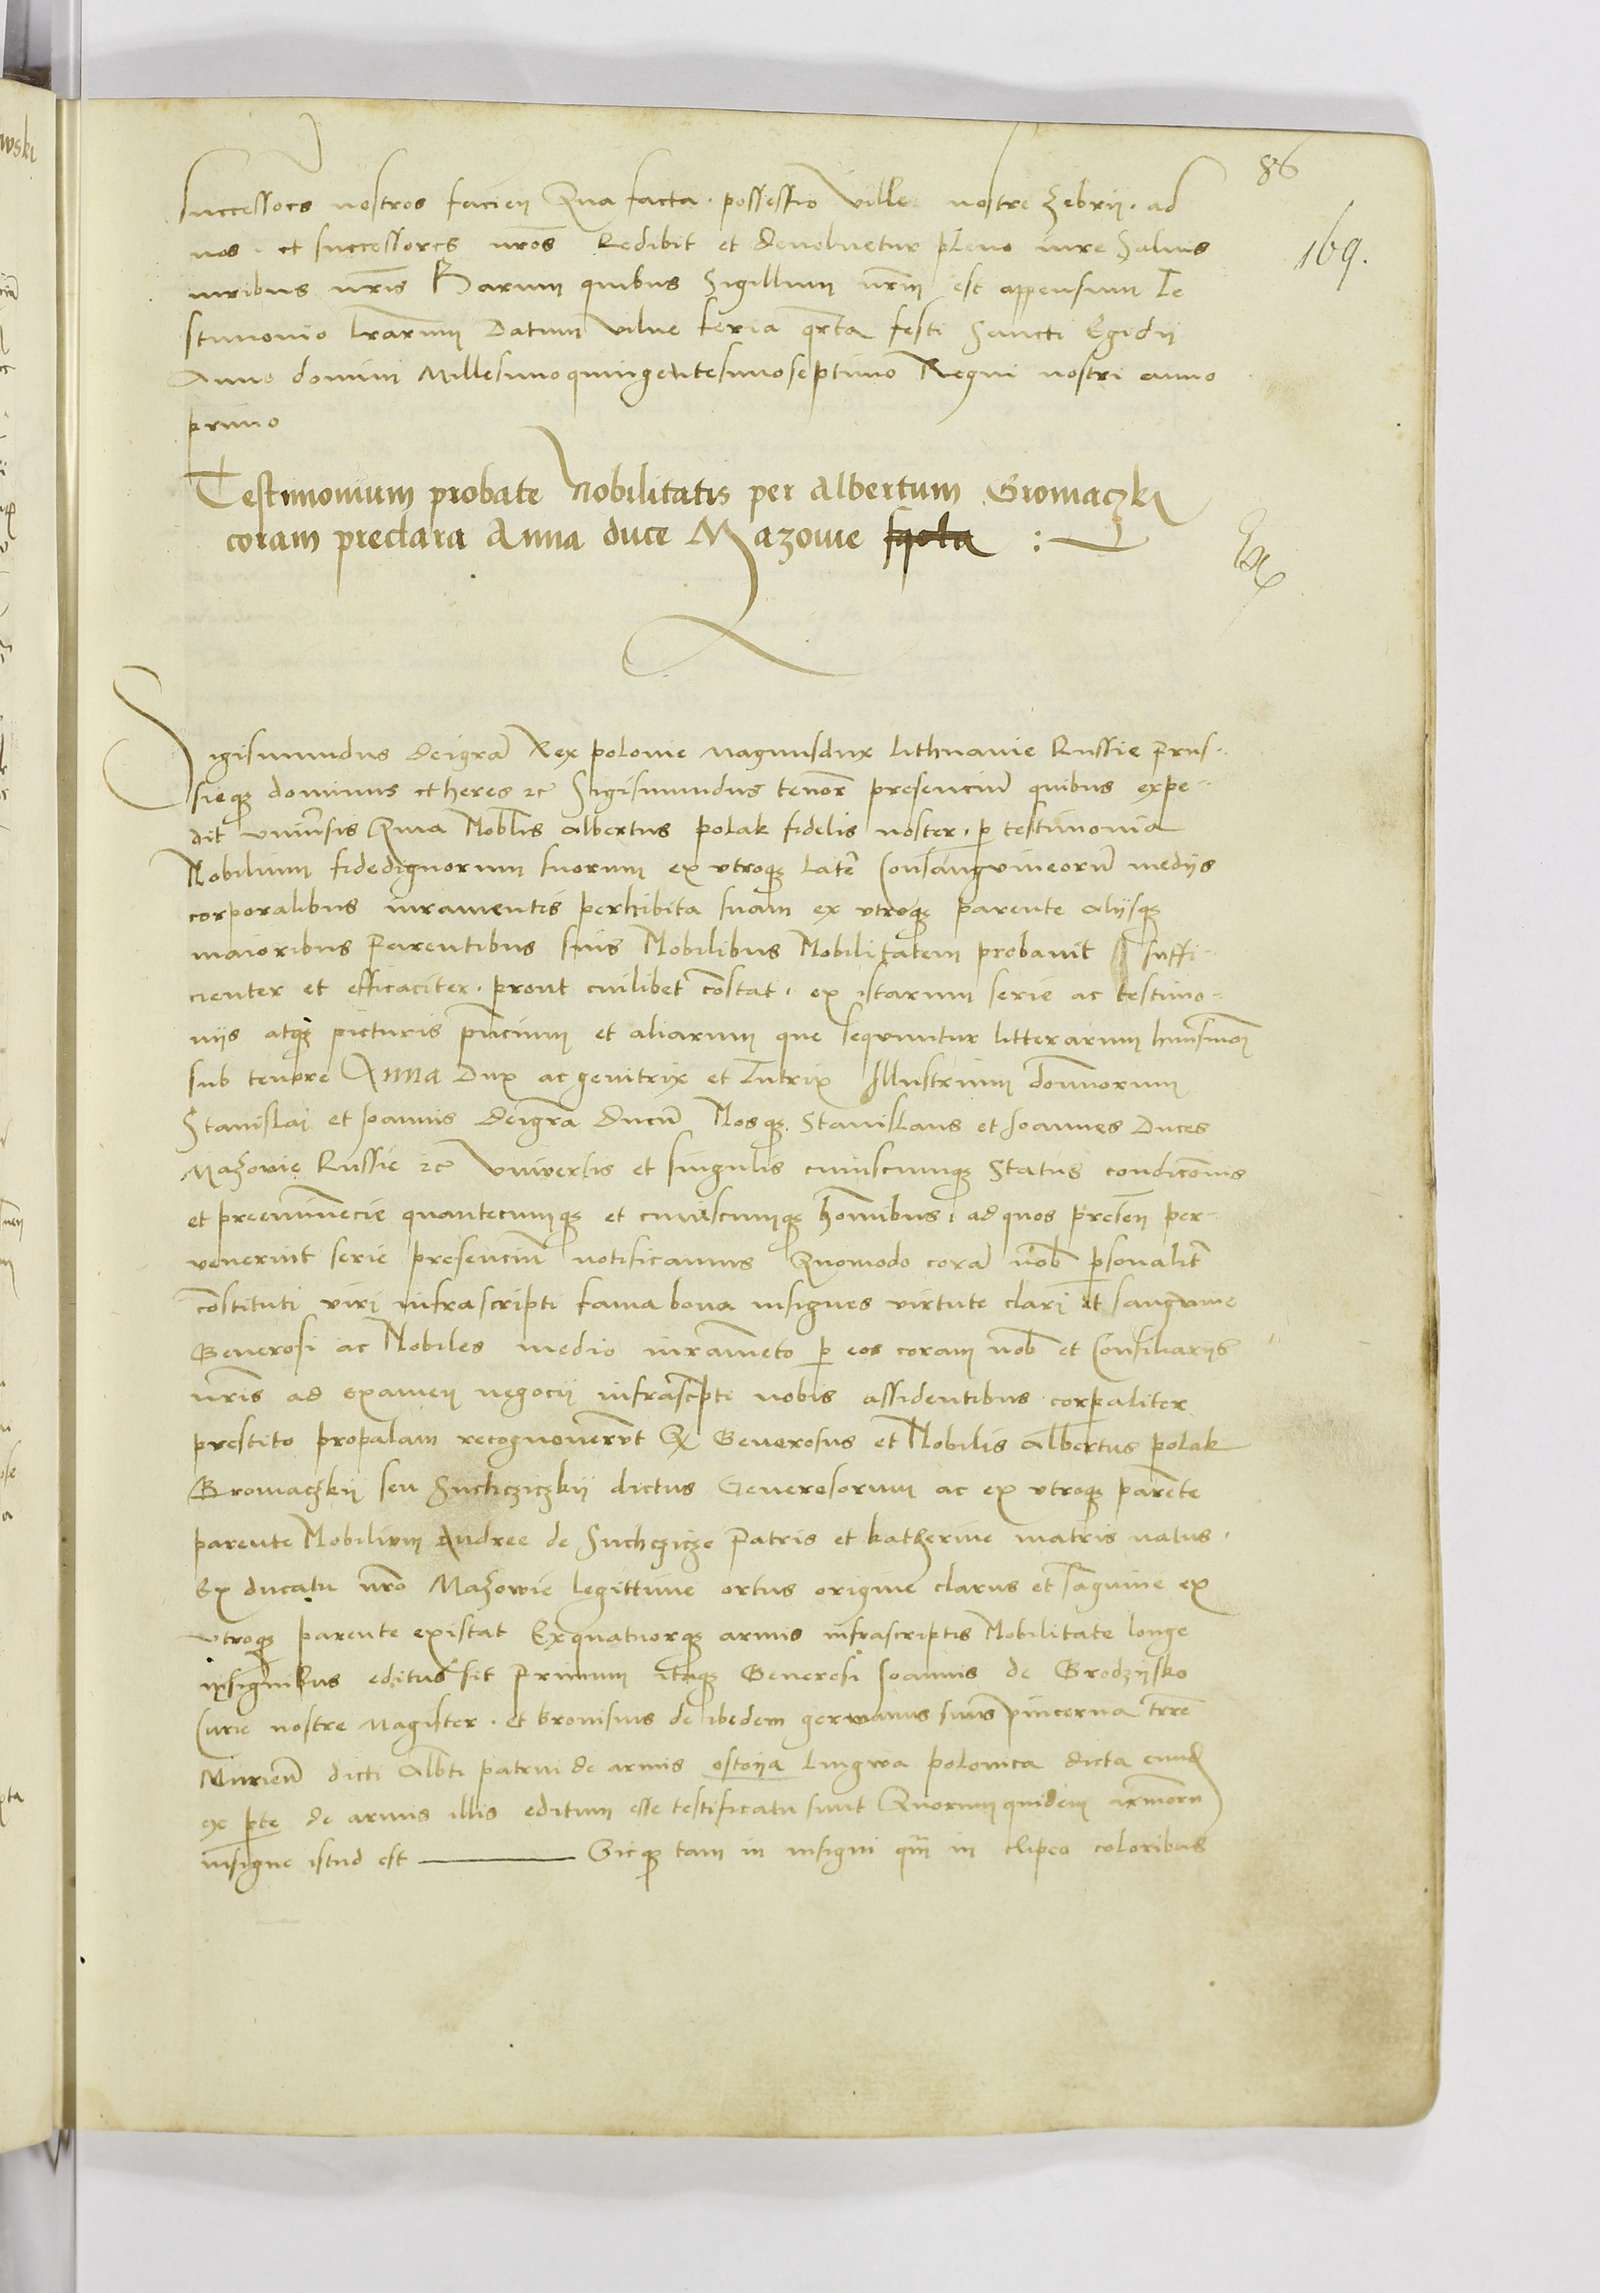 86
169.
successores nostros facien Qua facta . possessio Ville nostre Zebrii . ad
nos . et successores nros Redibit et devolvetur pleno iure Salvis
iuribus nris Harum quibus Sigillum nrm est appensum Te
stimonio lrarum Datum vilne feria qrta festi Sancti Egidii
Anno domini Millesimoquingentesimoseptimo Regni nostri anno
primo
Testimonium probate Nobilitatis per Albertum Gromaczki
coram preclara Anna duce Mazovie :
Sigismundus deigra Rex polonie Magnusdux Lithvanie Russie Prus-
sieqz dominus et heres etc Sigismundus tenore presencium quibus expe-
dit universis Quia Noblis Albertus polak fidelis noster . p testimonia
Nobilium fidedignorum suorum ex utroqz latere Consangvineorum medijs
corporalibus iuramentis perhibita suam ex utroqz parente alijsqz
maioribus Parentibus suis Nobilibus Nobilitatem probavit suffi-
cienter et efficaciter . prout cuilibet constat . ex istarum serie ac testimo-
niis atqz picturis pncium et aliarum que sequuntur litterarum huiusmodi
sub tenore Anna Dux ac genitrix et Tutrix Illustrium domnorum
Stanislai et Joannis deigra ducum Nosqz Stanislaus et Joannes Duces
Mazovie Russie etc Universis et singulis cuiuscumqz status condiconis
et preeminencie quantecumqz et cuiuscumqz homibus . ad quos presen per-
venerint serie presencium notificamus Quomodo coram nob psonaliter
constituti viri infrascripti fama bona insignes virtute clari et sangvine
Generosi ac Nobiles medio iuramento p eos coram nob et Consiliariis
nris ad examen negocii infrascpti nobis assidentibus corpaliter
prestito propalam recognoverunt Q Generosus et Nobilis Albertus polak
Gromaczkij seu Suchcziczkij dictus Generosorum ac ex utroqz parente
parente Nobilium Andree de Suchczicze Patris et katherine matris natus .
Ex ducatu nro Mazowie legittime ortus origine clarus et sagvine ex
utroqz parente existat Exquatuorqz armis infrascriptis Nobilitate longe
insignibus editus sit Primum itaqz Generosi Joannis de Grodzysko
Curie nostre Magister . et bronisius de ibedem germanus suus pincerna trre
dicti Albti patrui de armis ostoya Lingwa polonica dicta eundem
ex pte de armis illis editum esse testificati sunt Quorumquidem armorum
insigne istud est ——— Sicqz tam in insigni qm in clipeo coloribus